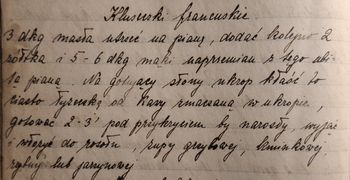 Kluseczki francuskie
3 dkg masła utrzeć na pianę, dodać kolejno 2
żółtka i 5-6 dkg mąki naprzemian z tego ubi-
ta piana. Na gotujący słony ukrop kłaść to
ciasto łyżeczką od kawy zmaczaną w ukropie,
gotować 2-3' pod przykryciem by narosły, wyjąć
i włożyć do rosołu, zupy grzybowej, kminkowej,
rybnej lub jarzynowej